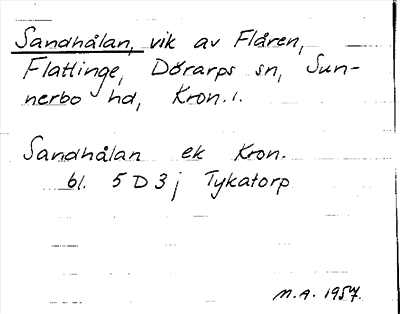 Sandhålan, vik av Flåren,
Flattinge, Dörarps sn, Sun-
nerbo hd, Kron.l.
Sandhålan ek Kron.
bl. 5 D 3 j Tykatorp
M.A. 1957.